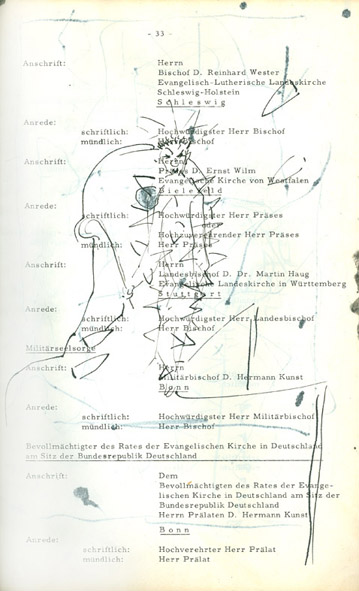 - 33 -
Anschrift: Herrn
Bischof D. Reinhard Wester
Evangelisch-Lutherische Landeskirche
Schleswig-Holstein
Schleswig
Anrede:
schriftlich: Hochwürdigster Herr Bischof
mündlich: Herr Bischof
Anschrift: Herrn
Präses D. Ernst Wilm
Evangelische Kirche von Westfalen
Bielefeld
Anrede:
schriftlich: Hochwürdigster Herr Präses
Hochzuverehrender Herr Präses
mündlich: Herr Präses
Anschrift: Herrn
Landesbischof D. Dr. Martin Haug
Evangelische Landeskirche in Württemberg
Stuttgart
Anrede:
schriftlich: Hochwürdigster Herr Landesbischof
mündlich: Herr Bischof
Militärseelsorge
Anschrift: Herrn
Militärbischof D. Hermann Kunst
Bonn
Anrede:
schriftlich: Hochwürdigster Herr Militärbischof
mündlich: Herr Bischof
Bevollmächtigter des Rates der Evangelischen Kirche in Deutschland
am Sitz der Bundesrepublik Deutschland
Anschrift: Dem
Bevollmächtigten des Rates der Evange-
lischen Kirche in Deutschland am Sitz der
Bundesrepublik Deutschland
Herrn Prälaten D. Hermann Kunst
Bonn
Anrede:
schriftlich: Hochverehrter Herr Prälat
mündlich: Herr Prälat